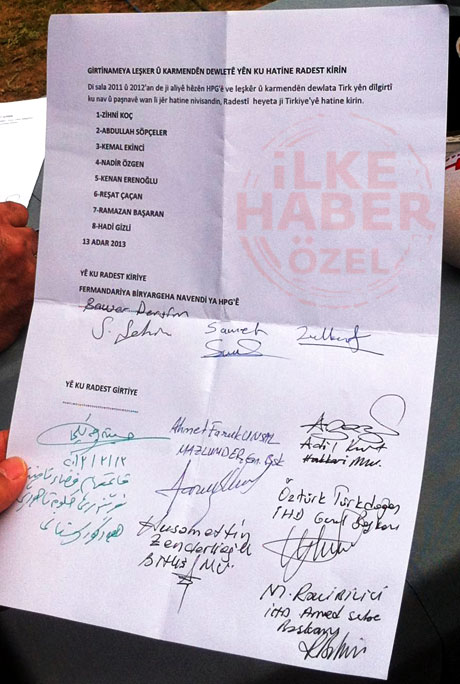 GIRTINAMEYA LEŞKER Û KARMENDÊN DEWLETE YÊN KU HATINE RADEST KIRIN
Di sala 2011 û 2012'an de ji aliyê hêzên HPG'ê ve leşker û karmendên dewlata Tirk yên dilgirtî
ku nav û paşnavê wan li jêr hatine nivisandin, Radestî heyeta ji Tirkiye'yê hatine kirin.
1-ZİHNİ KOÇ
2-ABDULLAH SÖPÇELER
3-KEMAL EKİNCİ
4-NADİR ÖZGEN
5-KENAN ERENOĞLU
6-REŞAT ÇAÇAN
7-RAMAZAN BAŞARAN
8-HADİ GİZLİ
13 ADAR 2013
İLKE
HABER
ÖZEL
YÊ KU RADEST KIRIYE
FERMANDARIYA BIRYARGEHA NAVENDÎ YA HPG'Ê
YÊ KU RADEST GIRTIYE
Ahmet Faruk ÜNSAL
MAZLUMDER Gn. Bşk
Hüsamettin
Zenderlioğlu
Bitlis / MV.
Adil Kurt
Hakkari MV.
Öztürk Türkdoğan
İHD Genel Başkanı
M. Raci Bilici
İHD Amed Şube
Başkanı